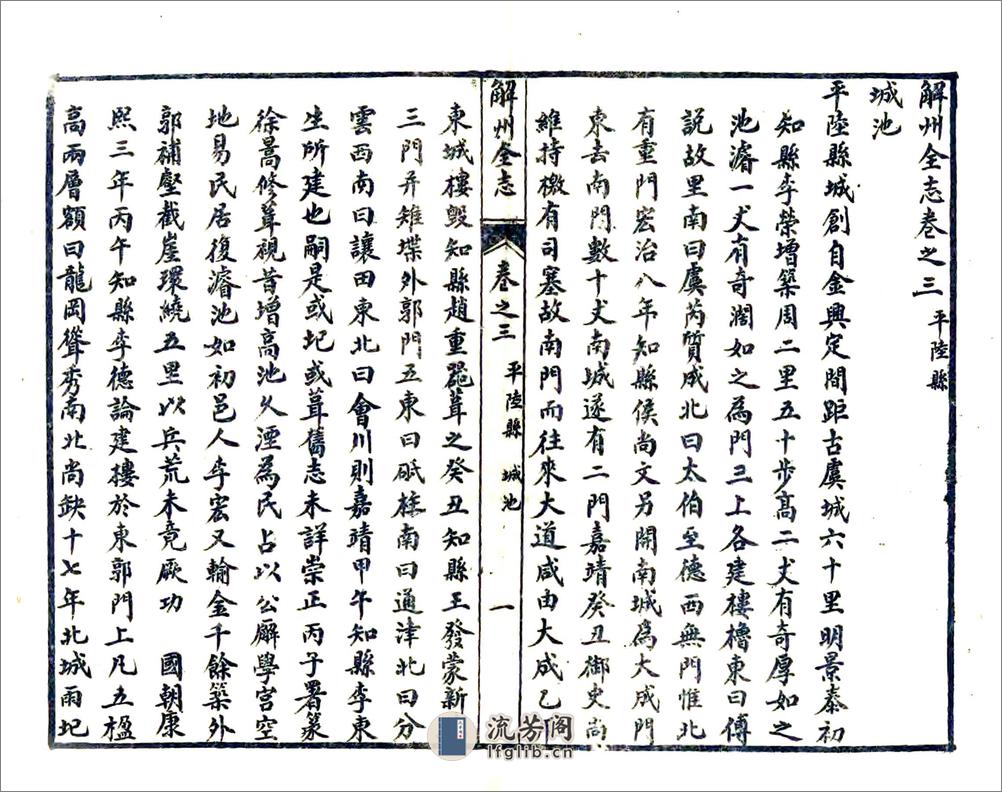 解州全志卷之三 平陸縣
城池
平陸縣城創自金興定間距古虞城六十里明景泰初
知縣李榮增築周二里五十步高二丈有奇厚如之
池濬一丈有奇濶如之為門三上各建樓櫓東曰傅
說故里南曰虞芮質成北曰太伯至德西無門惟北
有重門宏治八年知縣侯尚文另開南城為大成門
東去南門數十丈南城遂有二門嘉靖癸丑御史尚
維持檄有司塞故南門而往來大道咸由大成乙
解州全志 卷之三 平陸縣 城池 一
東城樓毀知縣趙重器葺之癸丑知縣王發蒙新
三門并雉堞外郭門五東曰砥柱南曰通津北曰分
雲西南曰讓田東北曰會川則嘉靖甲午知縣李東
生所建也嗣是或圮或葺舊志未詳崇正丙子署篆
徐嵩修葺視昔增高池久湮為民占以公廨學宮空
地易民居復濬池如初邑人李宏又輸金千餘築外
郭補壑截崖環繞五里以兵荒未竟厥功 國朝康
熙三年丙午知縣李德論建樓於東郭門上凡五楹
高兩層額曰龍岡聳秀南北尚缺十七年北城雨圮
流芳阁
lfglib.cn